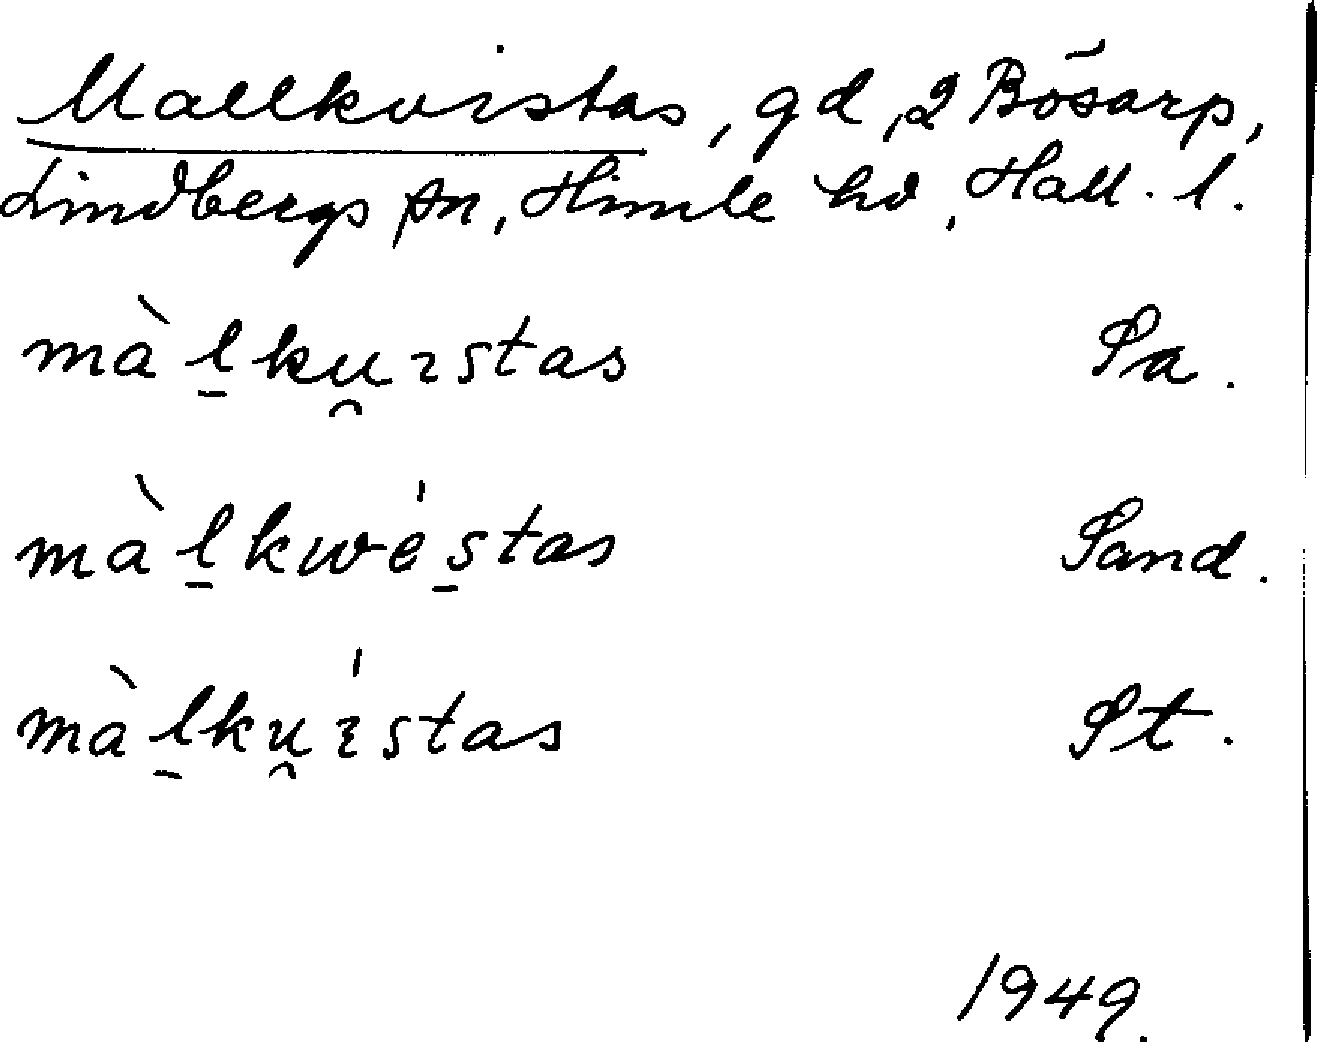 Mallkvistas, gd, 2 Bösarp,
Lindbergs sn, Himle hd, Hall. l.
màl̠ku̯ɪstas Sa.
màl̠kwés̠tas Sand.
màl̠ku̯ɪ́stas St.
1949.